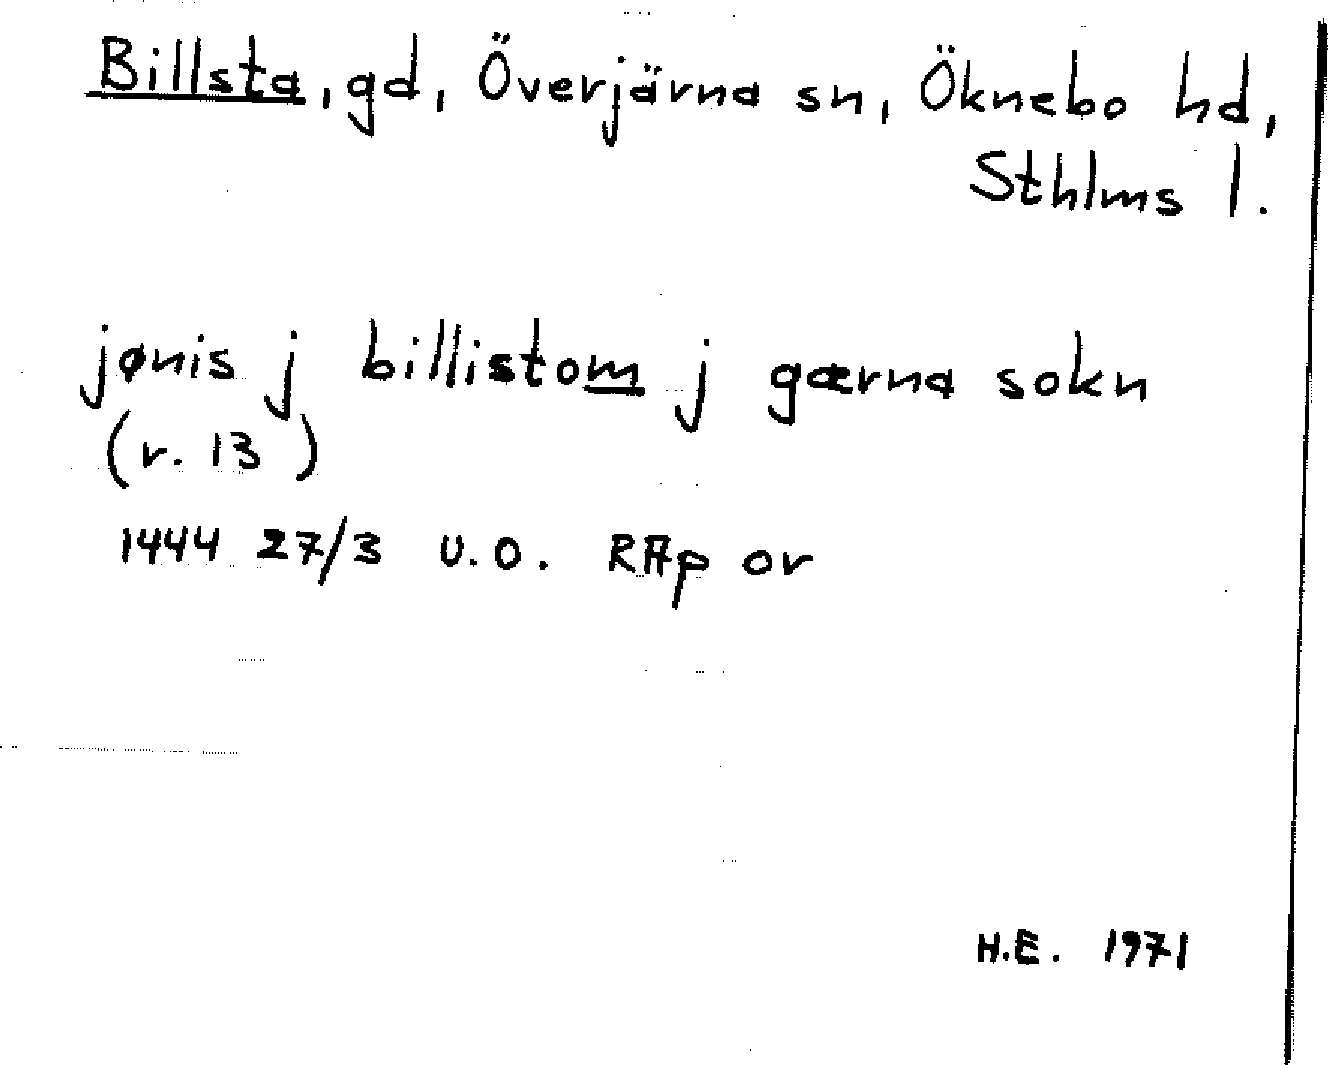 Billsta, gd, Överjärna sn, Öknebo hd,
Sthlms l.
jønis j billistom j gærna sokn
(r. 13)
1444 27/3 u.o. RAp or
H.E. 1971